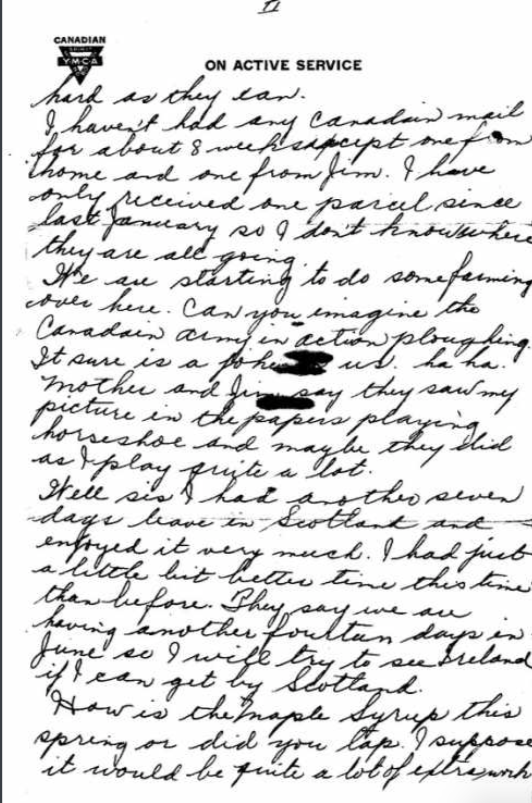 II
CANADIAN
YMCA
ON ACTIVE SERVICE
hard as they can.
I haven't had any Canadain mail
for about 8 weeks except one from
home and one from Jim. I have
only received one parcel since
last January so I don't know where
they are all going.
We are starting to do some farming
over here. Can you imagine the
Canadain army in action ploughing.
It sure is a joke us. ha ha.
Mother and Jim say they saw my
picture in the papers playing
horseshoe and maybe they did
as I play quite a lot.
Well sis I had another seven
days leave in Scotland and
enjoyed it very much. I had just
a little bit better time this time
than before. They say we are
having another fourteen days in
June so I will try to see Ireland
if I can get by Scotland.
How is the Maple Syrup this
spring or did you tap. I suppose
it would be quite a lot of extra work